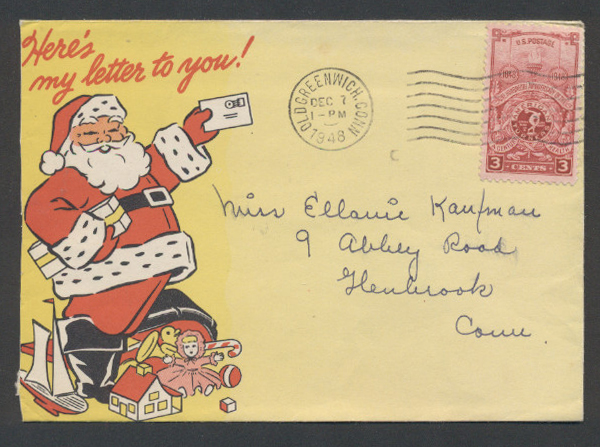 Here's
my letter to you!
OLD GREENWICH, CONN
DEC 7
1-PM
1948
U.S. POSTAGE
1848 1948
3 CENTS 3
Miss Ellanie Kaufman
9 Abbey Road
Glenbrook
Conn.